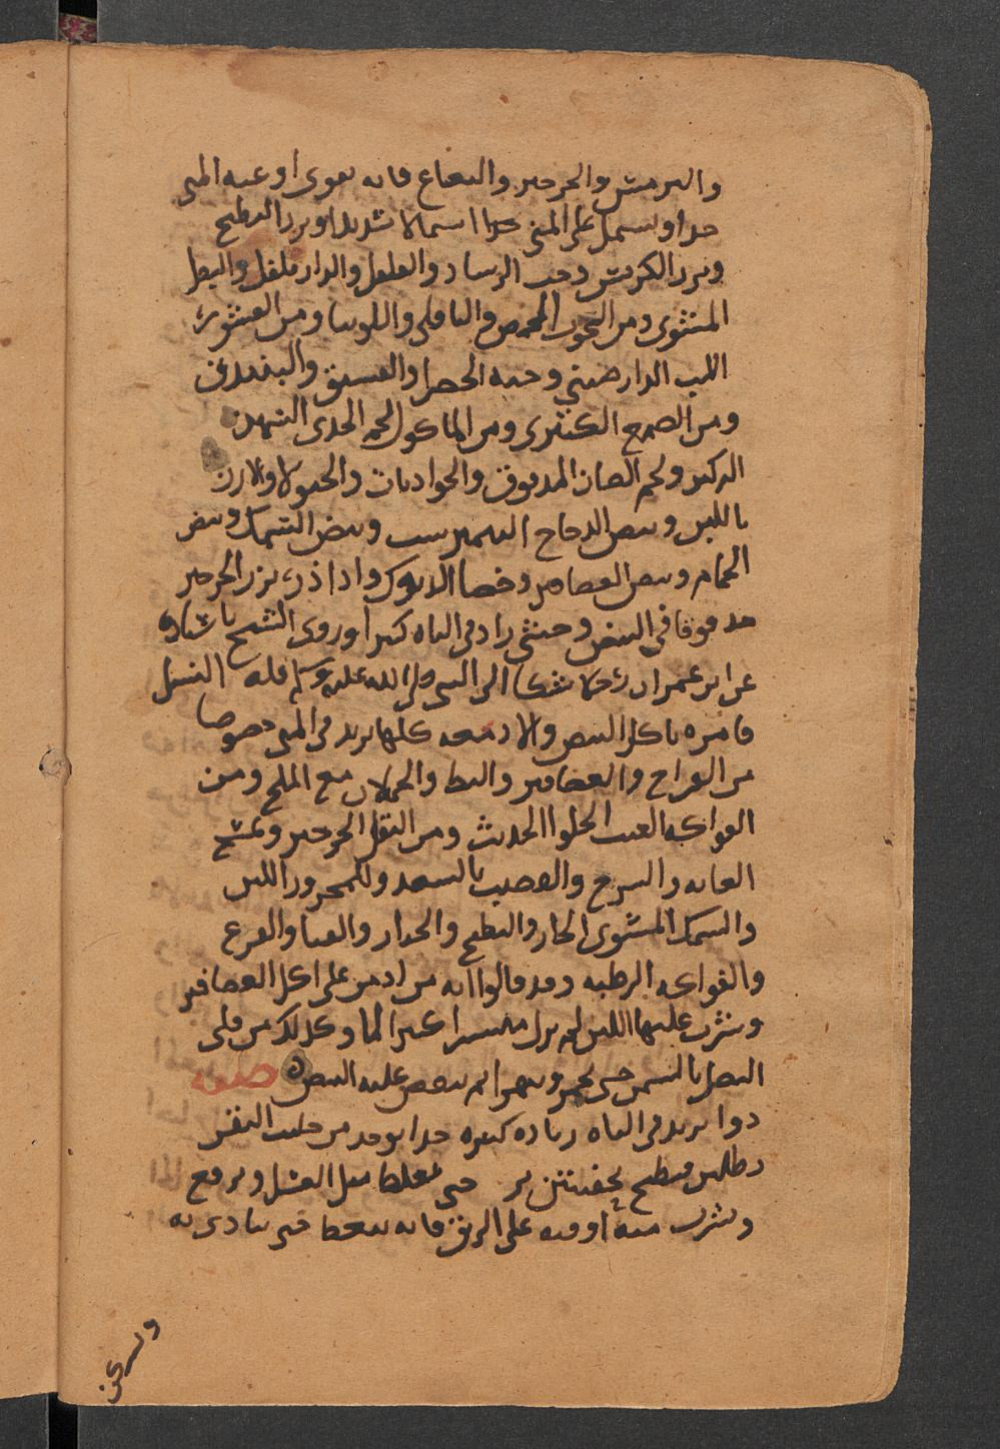 والبرمس والجرجير والنعناع فانه يقوى اوعيه المنى
جدا ويسمل على المنى جدا اسمالا شديدا وبزر البطيخ
وبزر الكرفس وحب الرشاد والفلفل والدار فلفل والبصل
المشوى ومن الحبوب الحمص والباقلى واللوبيا ومن
اللب الدارصيني وحبه الخضرا والفستق والبندق
ومن الصمغ الكثيرى ومن الماكول لحم الجدى السمين
ولحم الضان المدقوق والجواذبات والارز
باللبن وبيض الدجاج وبيض السمك وبيض
الحمام وبيض العصافير وخصا الديوك واذا ذر بزر الجرجير
مدقوقا فى البيض وحسى زاد فى الباه كثيرا وروى الشيخ باسناده
عن ابن عمر ان رجلا شكا الى النبى صلى الله عليه وسلم قله النسل
فامره باكل البيض والادمغه كلها يزيد فى المنى خصوصا
من الفراخ والعصافير والبط والحملان مع الملح ومن
الفواكه العنب الحلوا الحديث ومن البقل الجرجير
العانه والقضيب وللمحرور اللبن
والسمك المشوى الحار والبطيخ والخيار والقثا والقرع
والفواكه الرطبه وقد قالوا انه من ادمن على اكل العصافير
وشرب عليها اللبن لم يزل منتشرا كثير الما وكذلك من قلى
البصل بالسمن حتى يحمر ويهرا ثم يفقص عليه البيض ٥ صفه
دوا يزيد فى الباه زياده كثيره جدا يوخد من حليب البقر
رطلين فيطبخ حتى يغلظ مثل العسل ويرفع
ويشرب منه اوقيه على الريق فانه ينعظ حتى يتاذى به